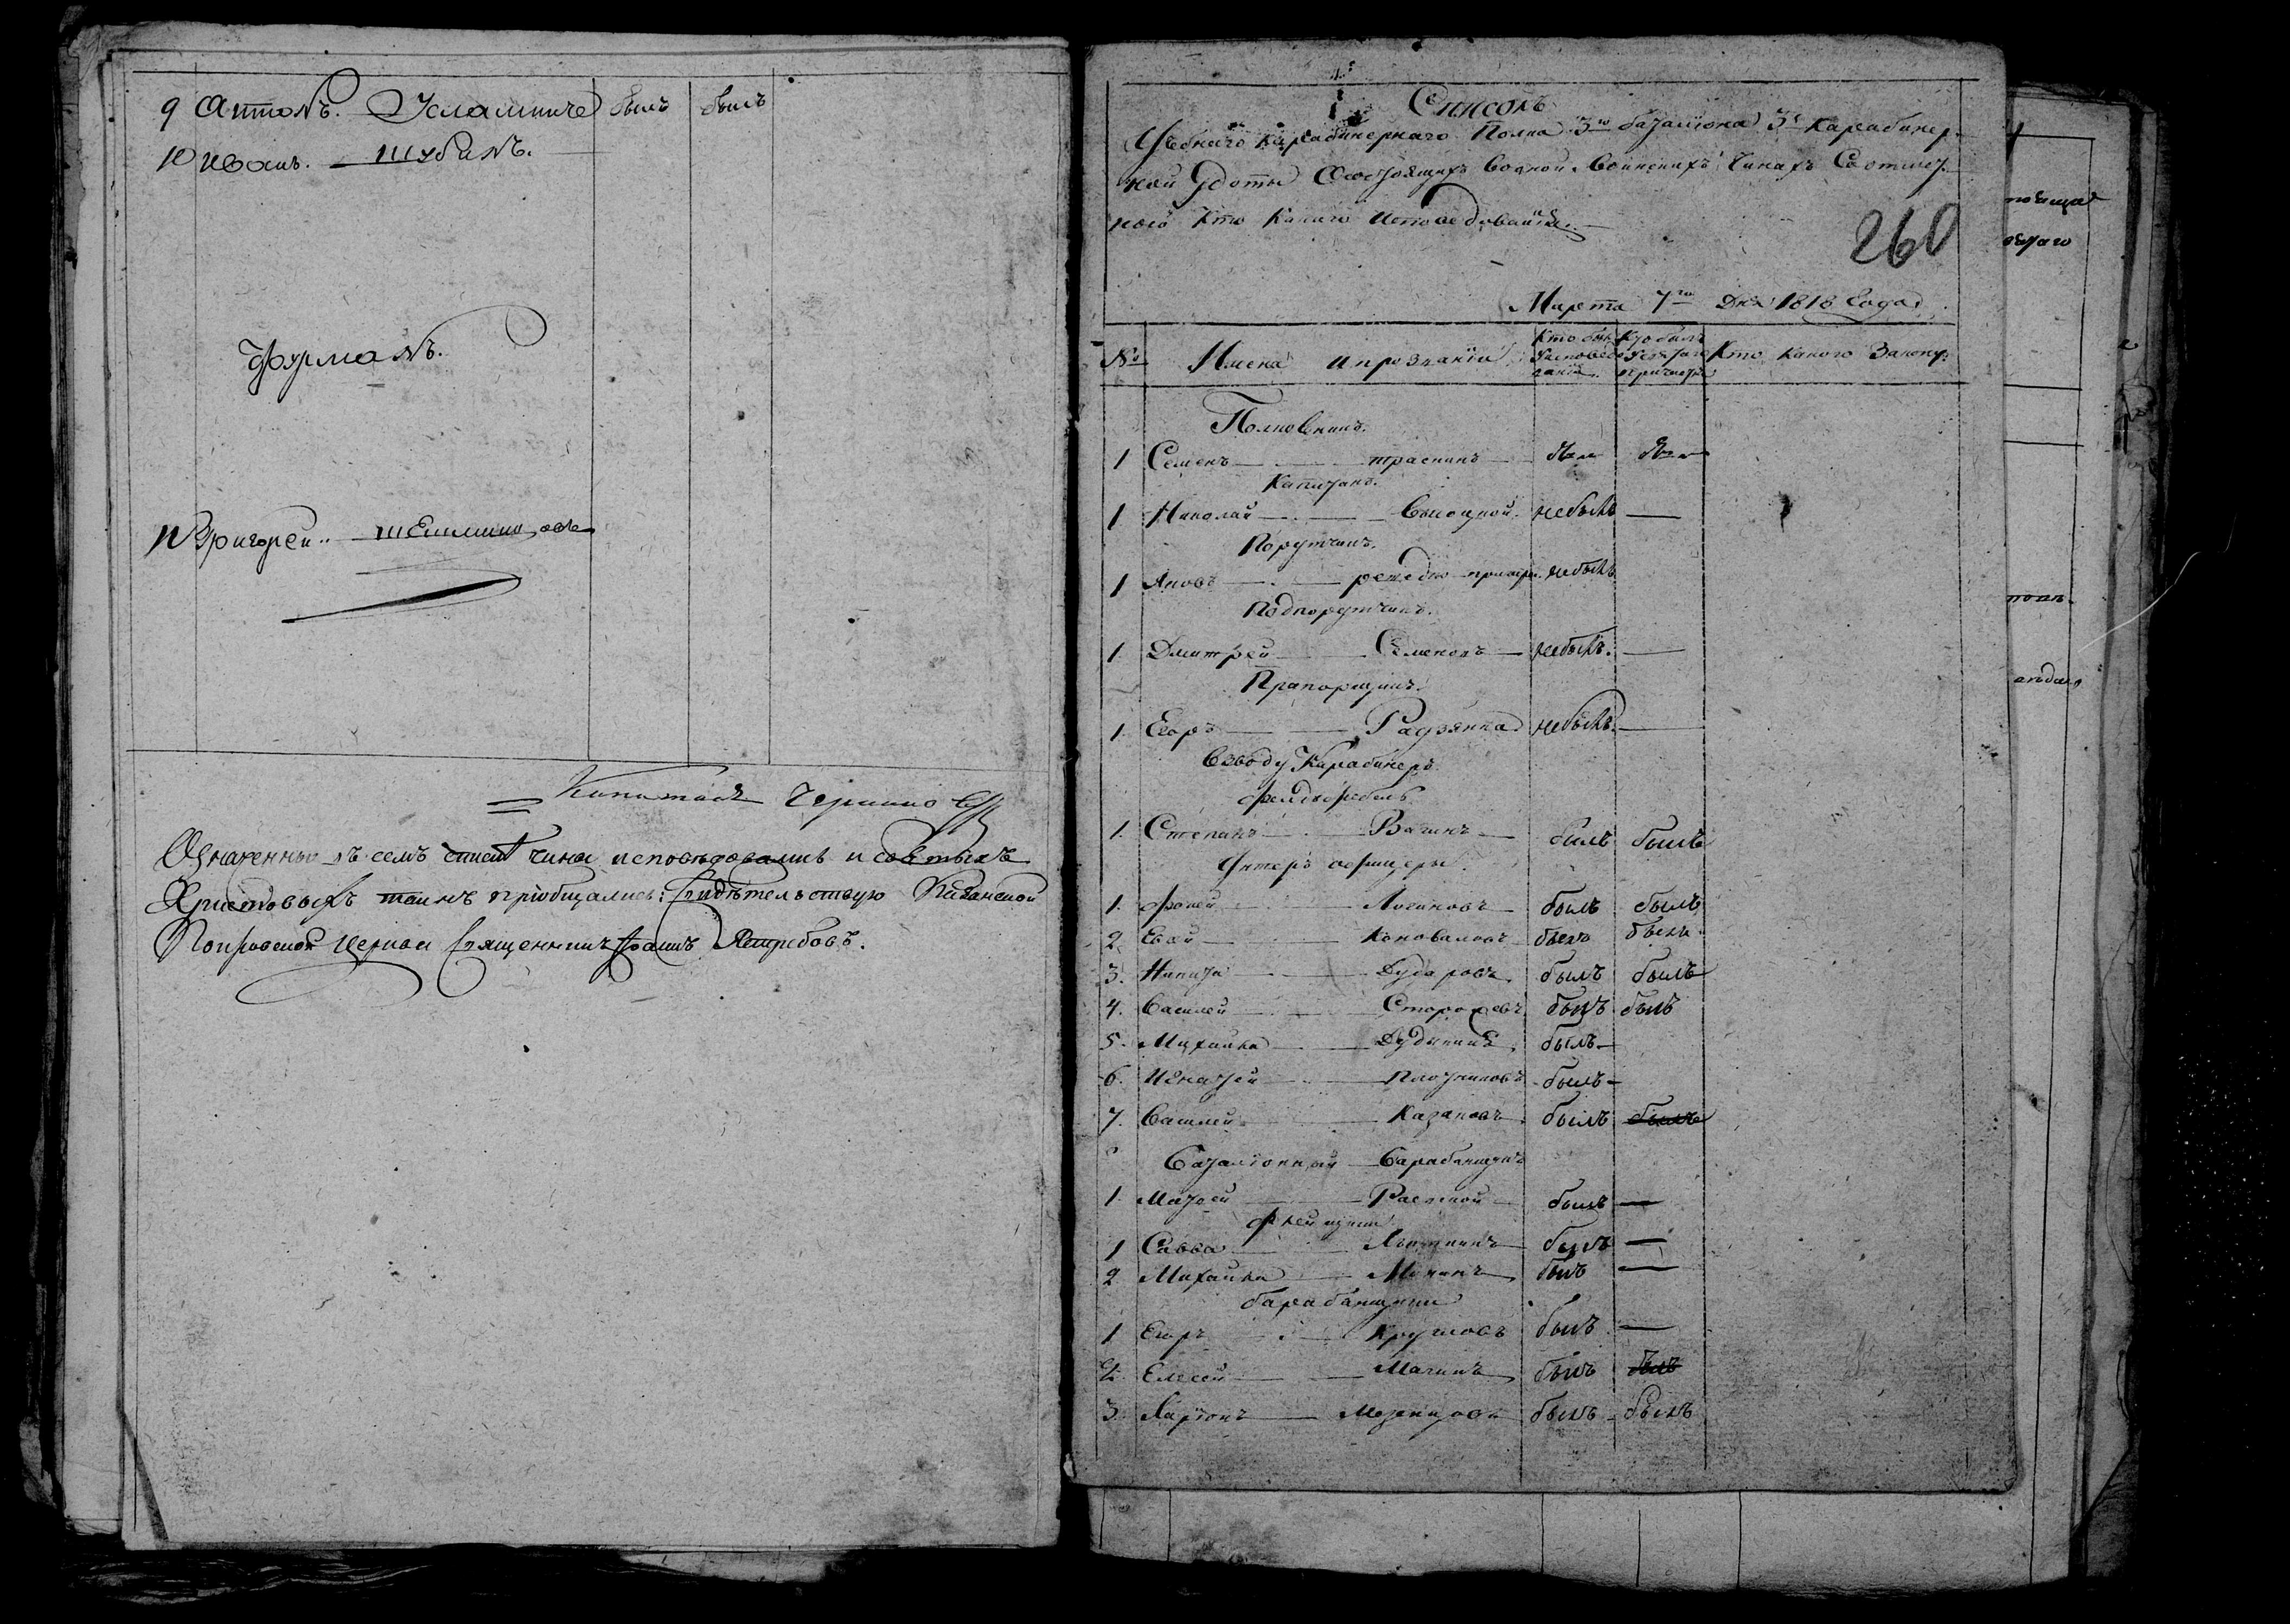 9 Антонъ. былъ былъ
10 Иванъ. Шубинъ.
Фурманъ.
Григорей
Капитанъ
Означенныя въ семъ чины исповѣдовались и святыхъ
Христовыхъ таинъ пріобщались: Свидѣтельствую Казанской
Покровской церкви Священникъ Ястребовъ.
Списокъ
Учебнаго Карабинернаго Полка 3го баталіона 3й Карабинер-
ной Роты Состоящихъ Воинскихъ Чинахъ Сотмет-
кою Кто Какаго Исповедованія.
260
Марта 7го Дня 1818 Года
№ Имена ипрозванія Кто былъ Уисповеданія Кто былъ Усвятаго причастія Кто какого Закону
Полковникъ.
1 Семенъ траскинъ былъ былъ
Капитанъ.
1 Николай Высоцкой небылъ —
Порутчикъ.
1 Яковъ небылъ
Подпорутчикъ.
1. Дмитрей Семеновъ небылъ. —
Прапорщикъ.
1. Егоръ Радзянка небылъ. —
Взводу Карабинеръ.
Фелдвебель
1. Степанъ Вагинъ былъ былъ
Унтеръ офицеры
1. Фокей Логиновъ былъ былъ
2. Коноваловъ былъ былъ
3. Никита Дударовъ былъ былъ
4. Василей Сторожевъ былъ былъ
5. Михайла Дудыкинъ былъ —
6. Игнатей Плотниковъ былъ —
7. Василей Казаковъ былъ былъ
Баталіонный Барабанщикъ
1. Матвей былъ —
Флейщики
1 Савва былъ —
2 Михайла былъ —
барабанщики
1 Егоръ Кругловъ былъ —
2. Елесей Мачинъ былъ былъ
3. Ларіонъ Мезенцовъ былъ былъ